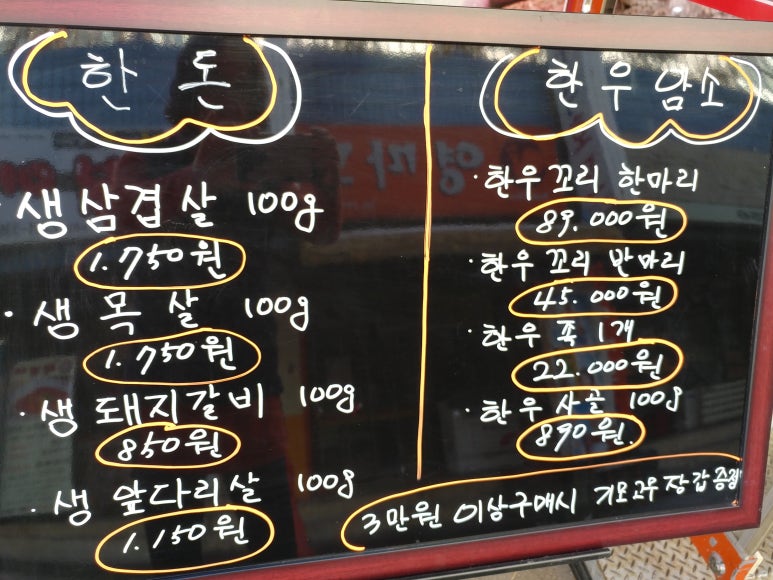 한돈
· 생삼겹살 100g
1.750원
· 생목살 100g
1.750원
· 생돼지갈비 100g
850원
· 생앞다리살 100g
1.150원
한우암소
· 한우꼬리 한마리
89.000원
· 한우꼬리 반마리
45.000원
· 한우족 1개
22.000원
· 한우사골 100g
890원.
3만원 이상구매시 기모고무장갑증정